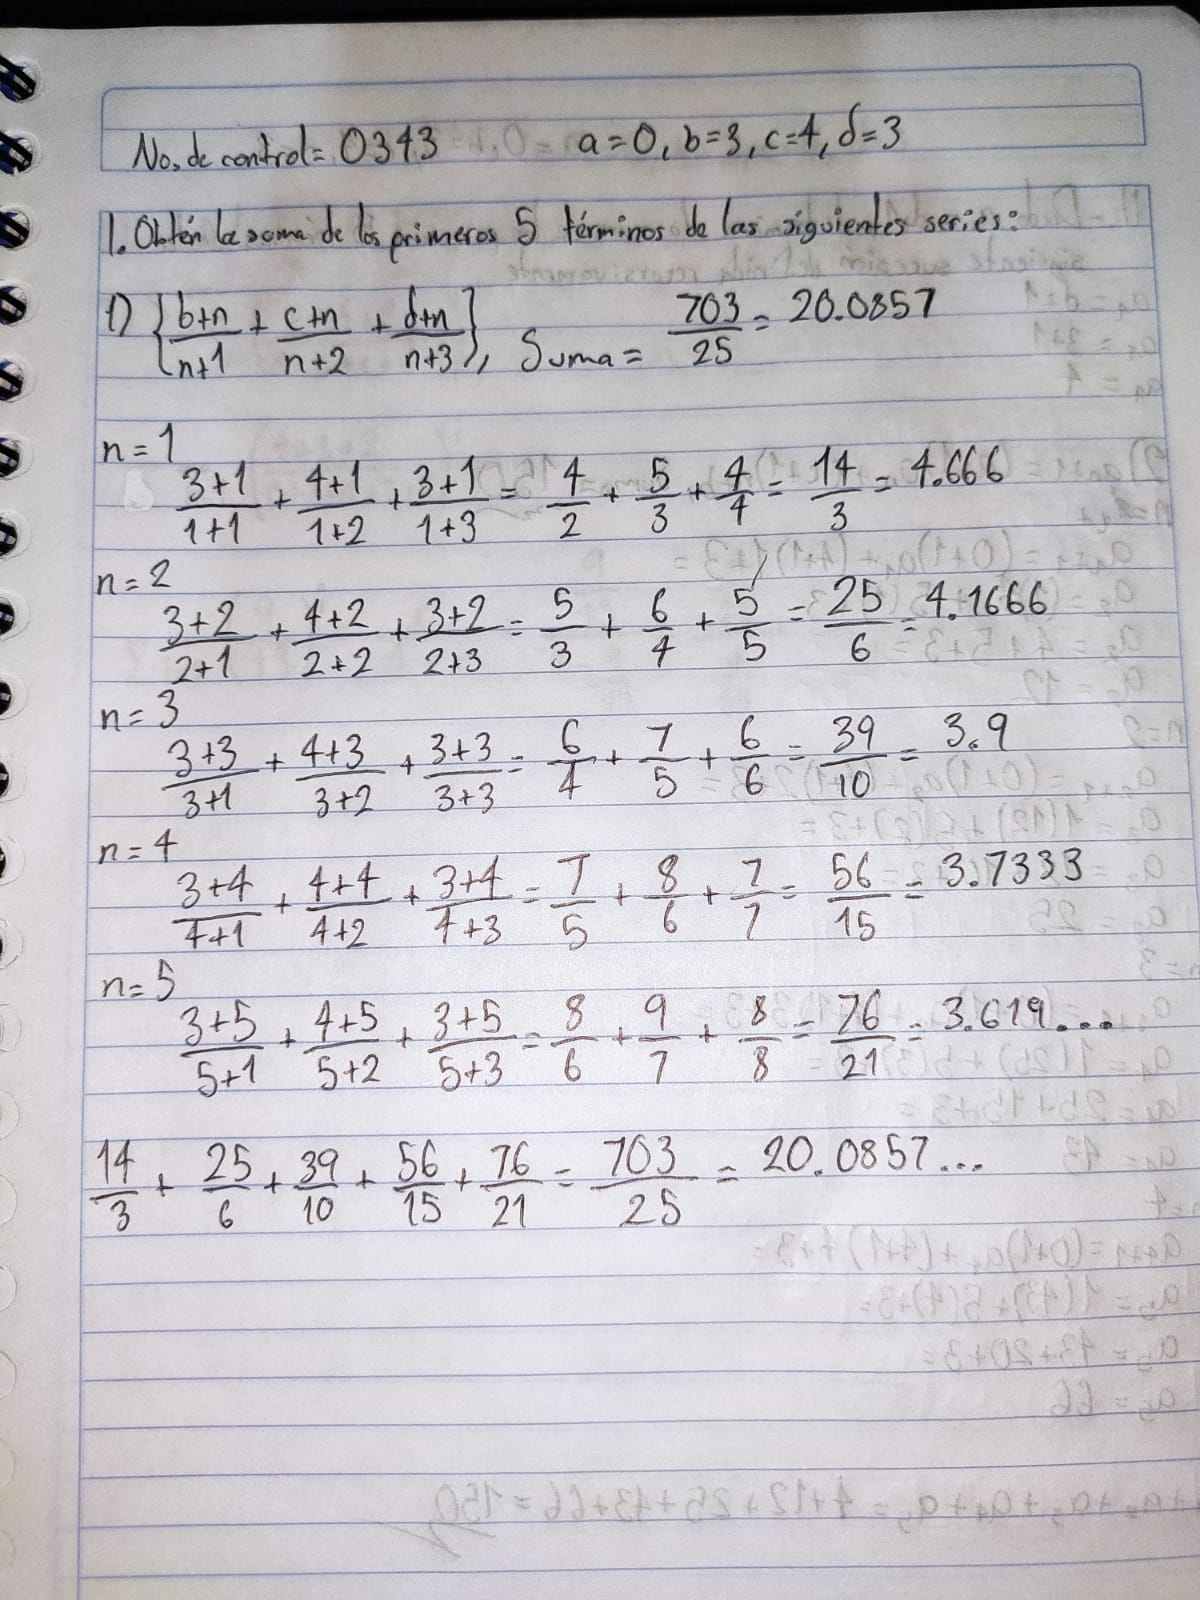 No. de control = 0343 a=0, b=3, c=4, d=3
1. Obtén la soma de los primeros 5 términos de las siguientes series:
1) {b+n/n+1 + c+n/n+2 + d+n/n+3}, Suma = 703/25 = 20.0857
n=1
3+1/1+1 + 4+1/1+2 + 3+1/1+3 = 4/2 + 5/3 + 4/4 = 14/3 = 4.666
n=2
3+2/2+1 + 4+2/2+2 + 3+2/2+3 = 5/3 + 6/4 + 5/5 = 25/6 = 4.1666
n=3
3+3/3+1 + 4+3/3+2 + 3+3/3+3 = 6/4 + 7/5 + 6/6 = 39/10 = 3.9
n=4
3+4/4+1 + 4+4/4+2 + 3+4/4+3 = 7/5 + 8/6 + 7/7 = 56/15 = 3.7333
n=5
3+5/5+1 + 4+5/5+2 + 3+5/5+3 = 8/6 + 9/7 + 8/8 = 76/21 = 3.619...
14/3 + 25/6 + 39/10 + 56/15 + 76/21 = 703/25 = 20.0857...